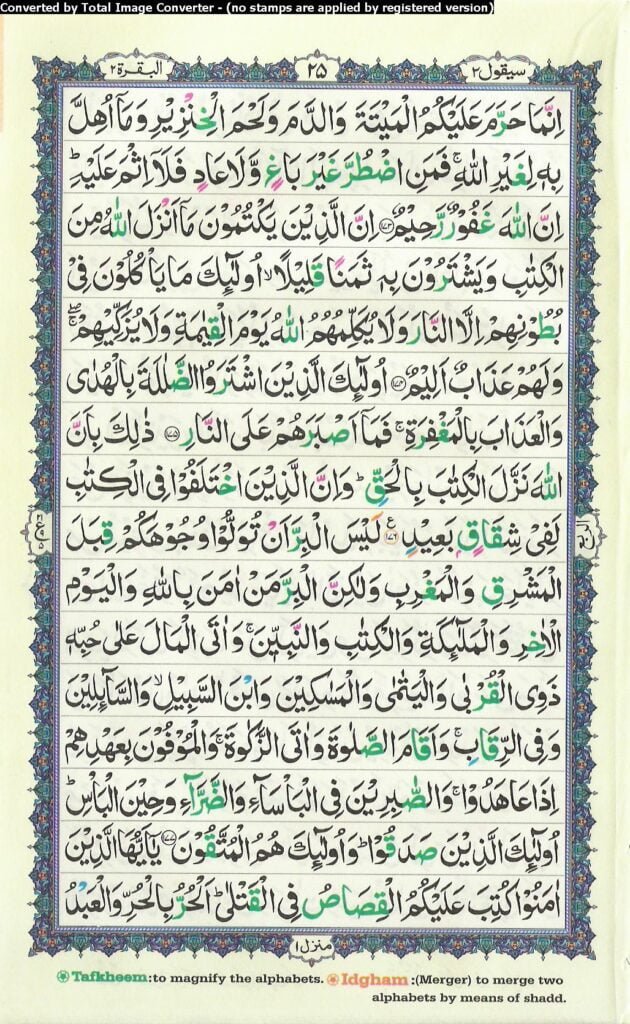 Converted by Total Image Converter - (no stamps are applied by registered version)
سیقول ۲
۲۵
البقرة ۲
اِنَّمَا حَرَّمَ عَلَيْكُمُ الْمَيْتَةَ وَالدَّمَ وَلَحْمَ الْخِنْزِيْرِ وَمَاۤ اُهِلَّ
بِهٖ لِغَيْرِ اللّٰهِ ۚ فَمَنِ اضْطُرَّ غَيْرَ بَاغٍ وَّلَا عَادٍ فَلَاۤ اِثْمَ عَلَيْهِ ؕ
اِنَّ اللّٰهَ غَفُوْرٌ رَّحِيْمٌ ﴿۱۷۳﴾ اِنَّ الَّذِيْنَ يَكْتُمُوْنَ مَاۤ اَنْزَلَ اللّٰهُ مِنَ
الْكِتٰبِ وَيَشْتَرُوْنَ بِهٖ ثَمَنًا قَلِيْلًا ۙ اُولٰٓئِكَ مَا يَاْكُلُوْنَ فِيْ
بُطُوْنِهِمْ اِلَّا النَّارَ وَلَا يُكَلِّمُهُمُ اللّٰهُ يَوْمَ الْقِيٰمَةِ وَلَا يُزَكِّيْهِمْ ۖۚ
وَلَهُمْ عَذَابٌ اَلِيْمٌ ﴿۱۷۴﴾ اُولٰٓئِكَ الَّذِيْنَ اشْتَرَوُا الضَّلٰلَةَ بِالْهُدٰى
وَالْعَذَابَ بِالْمَغْفِرَةِ ۚ فَمَاۤ اَصْبَرَهُمْ عَلَى النَّارِ ﴿۱۷۵﴾ ذٰلِكَ بِاَنَّ
اللّٰهَ نَزَّلَ الْكِتٰبَ بِالْحَقِّ ؕ وَاِنَّ الَّذِيْنَ اخْتَلَفُوْا فِي الْكِتٰبِ
لَفِيْ شِقَاقٍۭ بَعِيْدٍ ﴿۱۷۶﴾ ع لَيْسَ الْبِرَّ اَنْ تُوَلُّوْا وُجُوْهَكُمْ قِبَلَ
الْمَشْرِقِ وَالْمَغْرِبِ وَلٰكِنَّ الْبِرَّ مَنْ اٰمَنَ بِاللّٰهِ وَالْيَوْمِ
الْاٰخِرِ وَالْمَلٰٓئِكَةِ وَالْكِتٰبِ وَالنَّبِيّٖنَ ۚ وَاٰتَى الْمَالَ عَلٰى حُبِّهٖ
ذَوِي الْقُرْبٰى وَالْيَتٰمٰى وَالْمَسٰكِيْنَ وَابْنَ السَّبِيْلِ ۙ وَالسَّآئِلِيْنَ
وَفِي الرِّقَابِ ۚ وَاَقَامَ الصَّلٰوةَ وَاٰتَى الزَّكٰوةَ ۚ وَالْمُوْفُوْنَ بِعَهْدِهِمْ
اِذَا عَاهَدُوْا ۚ وَالصّٰبِرِيْنَ فِي الْبَاْسَآءِ وَالضَّرَّآءِ وَحِيْنَ الْبَاْسِ ؕ
اُولٰٓئِكَ الَّذِيْنَ صَدَقُوْا ؕ وَاُولٰٓئِكَ هُمُ الْمُتَّقُوْنَ ﴿۱۷۷﴾ يٰۤاَيُّهَا الَّذِيْنَ
اٰمَنُوْا كُتِبَ عَلَيْكُمُ الْقِصَاصُ فِي الْقَتْلٰى ؕ اَلْحُرُّ بِالْحُرِّ وَالْعَبْدُ
منزل ۱
Tafkheem:to magnify the alphabets. Idgham :(Merger) to merge two
alphabets by means of shadd.